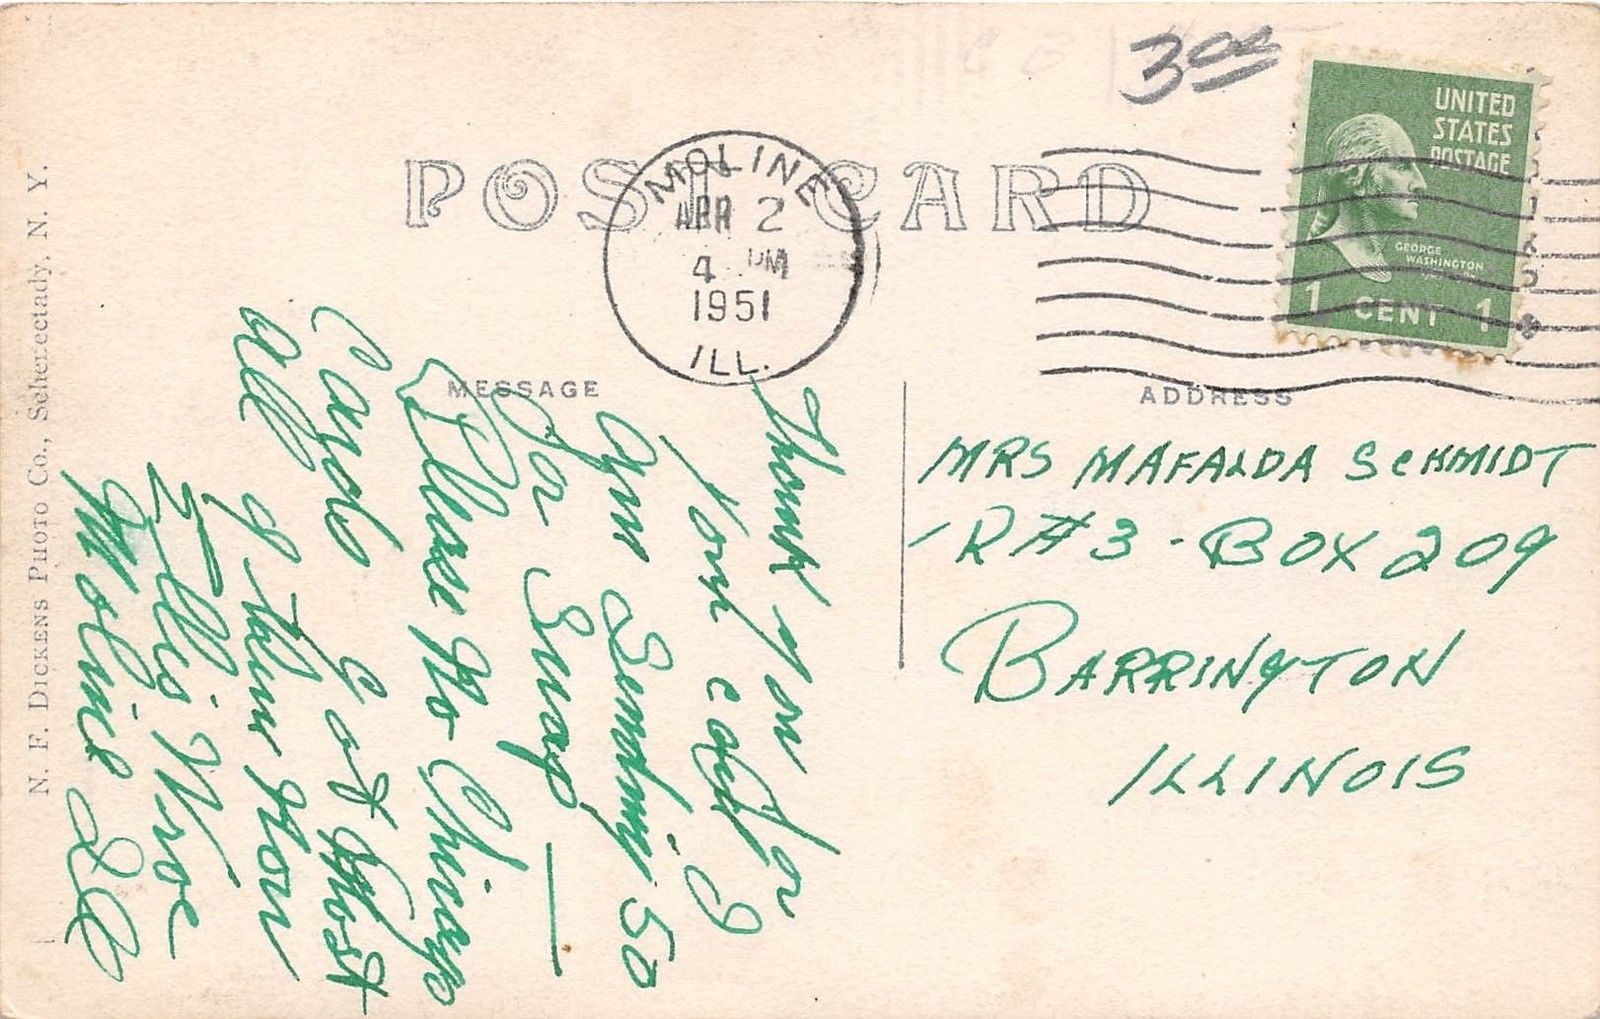 3 00
UNITED
STATES
POSTAGE
GEORGE
WASHINGTON
1 CENT 1
POST CARD
MOLINE
APR 2
4 PM
1951
ILL.
MESSAGE
ADDRESS
Thank you for
your card I
am Sending 50
to Swap
Please No Chicago
Cards Got Most
All of them Now
Ellis
Moline Ill
MRS MAFALDA SCHMIDT
R#3 - BOX 209
BARRINGTON
ILLINOIS
N. F. DICKENS PHOTO Co., Schenectady, N. Y.